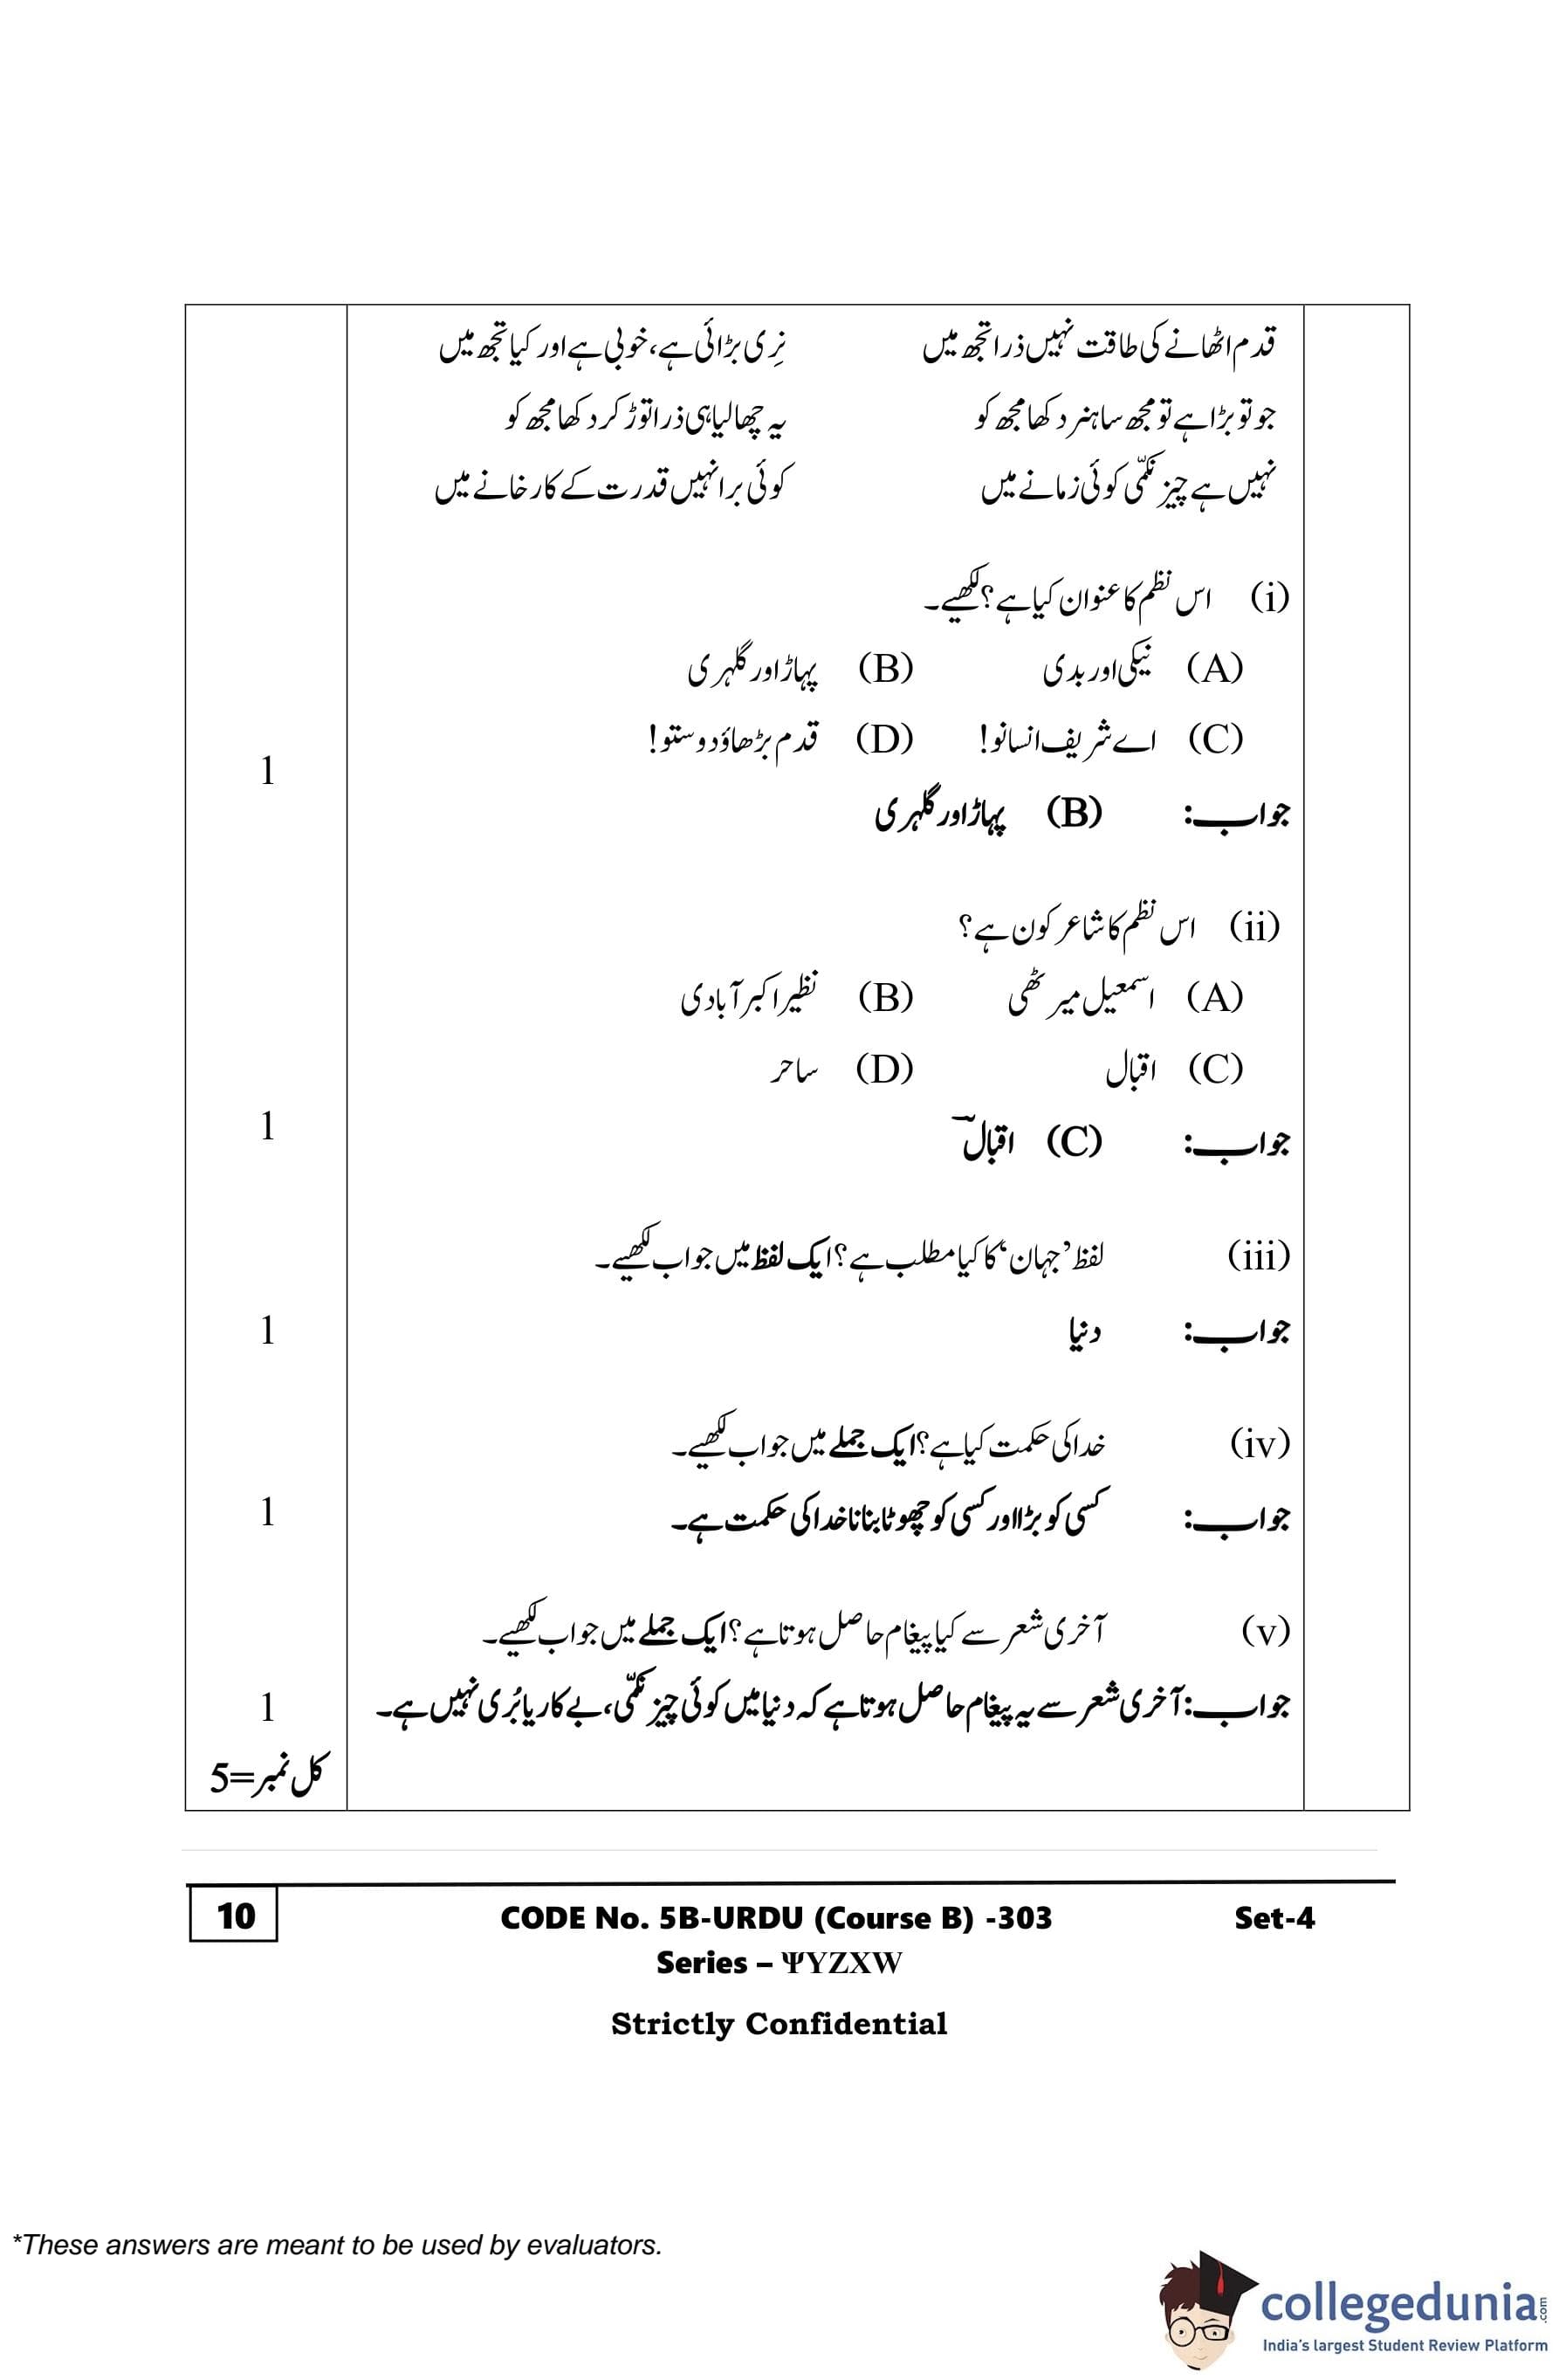 قدم اٹھانے کی طاقت نہیں ذرا تجھ میں نِری بڑائی ہے، خوبی ہے اور کیا تجھ میں
جو تو بڑا ہے تو مجھ سا ہنر دکھا مجھ کو یہ چھالیا ہی ذرا توڑ کر دکھا مجھ کو
نہیں ہے چیز نکمّی کوئی زمانے میں کوئی برا نہیں قدرت کے کارخانے میں
(i) اس نظم کا عنوان کیا ہے؟ لکھیے۔
(A) نیکی اور بدی (B) پہاڑ اور گلہری
(C) اے شریف انسانو! (D) قدم بڑھاؤ دوستو!
1
جواب: (B) پہاڑ اور گلہری
(ii) اس نظم کا شاعر کون ہے؟
(A) اسمعیل میرٹھی (B) نظیر اکبر آبادی
(C) اقبال (D) ساحر
1
جواب: (C) اقبالؔ
(iii) لفظ ’جہان‘ کا کیا مطلب ہے؟ ایک لفظ میں جواب لکھیے۔
جواب: دنیا 1
(iv) خدا کی حکمت کیا ہے؟ ایک جملے میں جواب لکھیے۔
جواب: کسی کو بڑا اور کسی کو چھوٹا بنانا خدا کی حکمت ہے۔ 1
(v) آخری شعر سے کیا پیغام حاصل ہوتا ہے؟ ایک جملے میں جواب لکھیے۔
جواب: آخری شعر سے یہ پیغام حاصل ہوتا ہے کہ دنیا میں کوئی چیز نکمّی، بے کار یا بُری نہیں ہے۔ 1
کل نمبر=5
10 CODE No. 5B-URDU (Course B) -303 Set-4
Series – ΨYZXW
Strictly Confidential
*These answers are meant to be used by evaluators.
collegedunia.com
India's largest Student Review Platform